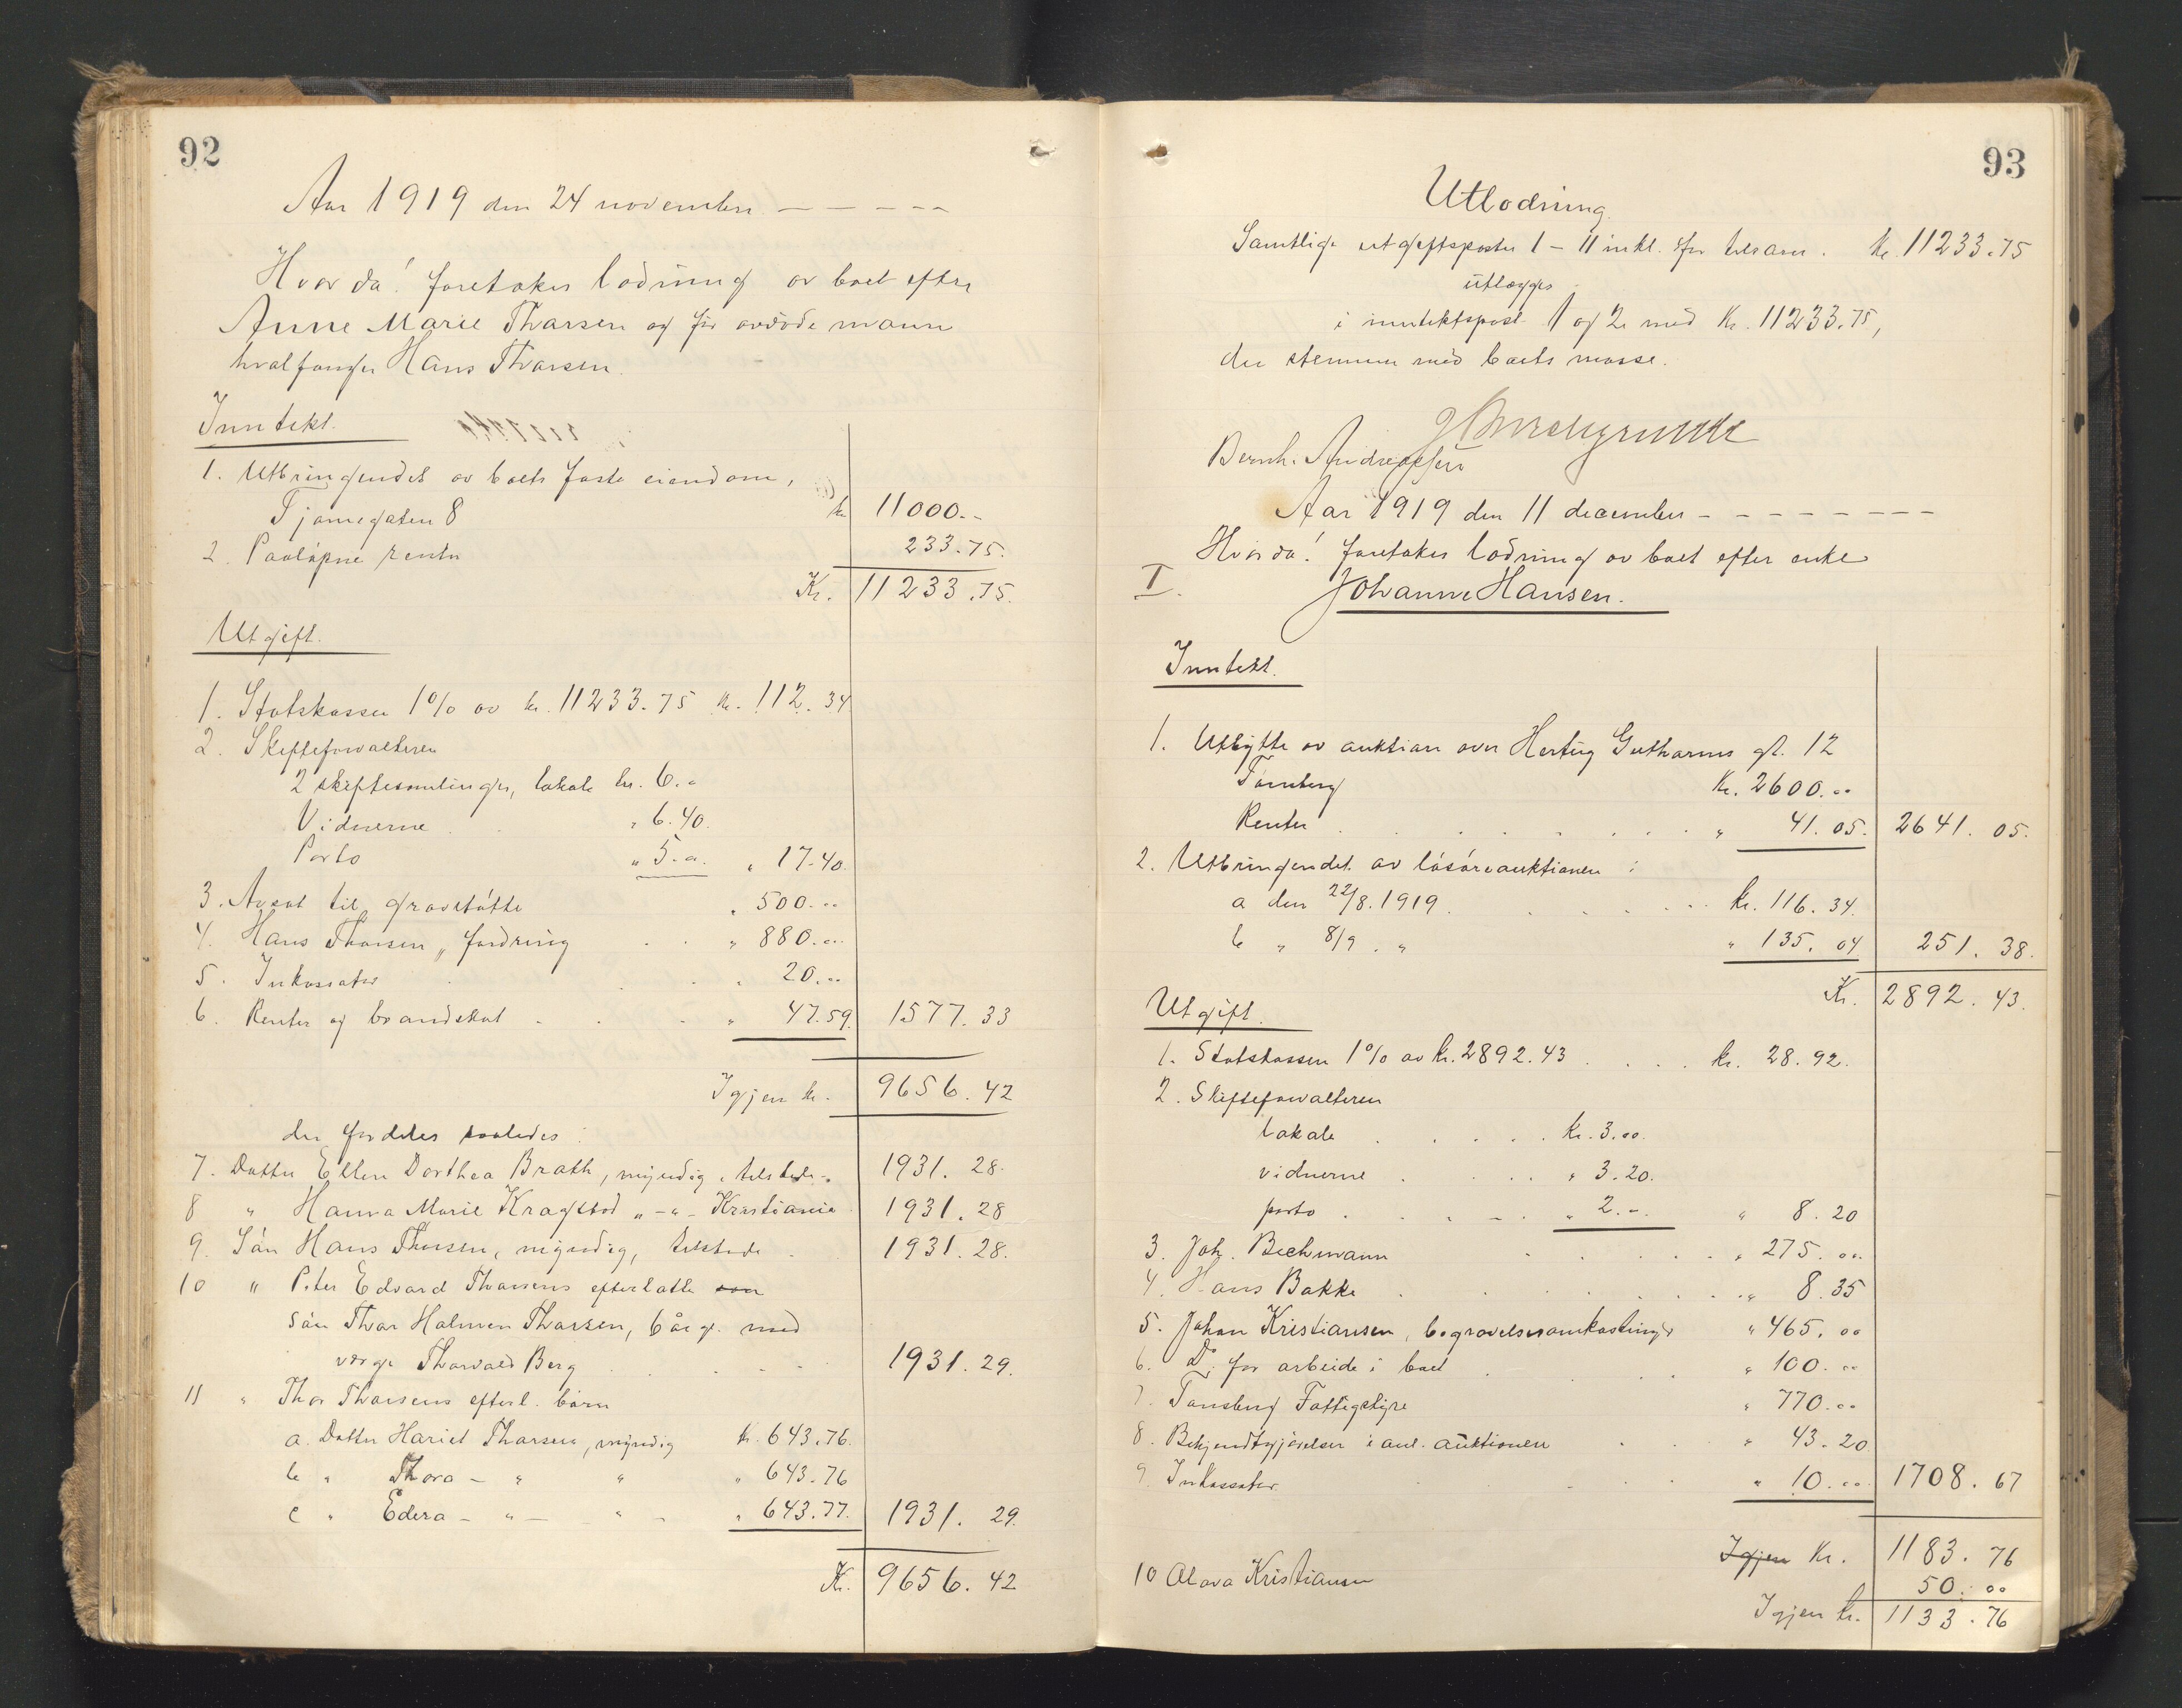 92
Aar 1919 den 24 november - - - - -
Hvor da! foretokes lodning av boet efter
Anne Marie Thorsen og før avdøde mann
hvalfanger Hans Thorsen.
Inntekt.
1. Utbringendet av boets faste eiendom,
Tjømegaten 8 kr 11000.-
2. Paaløpne renter 233.75.
Kr. 11233.75.
Utgift.
1. Statskassen 1% av kr. 11233.75 kr. 112.34
2. Skifteforvalteren
2 skiftesamlinger, lokale kr. 6.-
Vidnerne " 6.40.
Porto " 5.-. " 17.40.
3. Avsat til gravstøtte " 500.--
4. Hans Thorsen, fordring " 880.--
5. Inkassator " 20.--
6. Renter og brandskat " 47.59. 1577.33
Igjen kr. 9656.42
der fordeles saaledes:
7. Datter Ellen Dorthea Brath, myndig, tilstede. 1931.28.
8 " Hanna Marie Kragstod " - " - Kristiania 1931.28
9. Søn Hans Thorsen, myndig, tilstede 1931.28.
10 " Peter Edvard Thorsens efterlatte søn
søn Thor Holmen Thorsen, 6 år gl. med
verge Thorvald Berg 1931.29.
11 " Thor Thorsens efterl. børn
a. Datter Hariet Thorsen, myndig kr. 643.76.
b " Thora - " " " 643.76
c " Edera - " - " - " 643.77. 1931.29.
Kr. 9656.42
93
Utlodning.
Samtlige utgiftsposter 1 - 11 inkl. for tilsam. kr. 11233.75
utlægges
i inntektspost 1 og 2 med kr. 11233.75,
der stemmer med boets masse.
Bernh. Andreassen
Aar 1919 den 11 december - - - - - - - -
Hvor da! foretokes lodning av boet efter enke
I. Johanne Hansen.
Inntekt.
1. Utbytte av auktion over Hertug Guthorms gt. 12
Tønsberg Kr. 2600.--
Renter " 41.05. 2641.05.
2. Utbringendet av løsøreauktionen:
a den 22/8.1919. kr. 116.34.
b " 8/9. " " 135.04 251.38.
Kr. 2892.43.
Utgift.
1. Statskassen 1% av kr. 2892.43 kr. 28.92.
2. Skifteforvalteren
lokale kr. 3.00.
vidnerne " 3.20.
porto " 2.-. " 8.20
3. Joh. Bechmann " 275.00.
4. Hans Bakke " 8.35
5. Johan Kristiansen, begravelsesomkostninger " 465.00
6. Do. for arbeide i boet " 100.--
7. Tønsberg Fattigstyre " 770.--
8. Bekjendtgjørelser i anl. auktionen " 43.20
9. Inkassator " 10.00 1708.67
Igjen Kr. 1183.76
10 Olava Kristiansen 50.00
Igjen kr. 1133.76